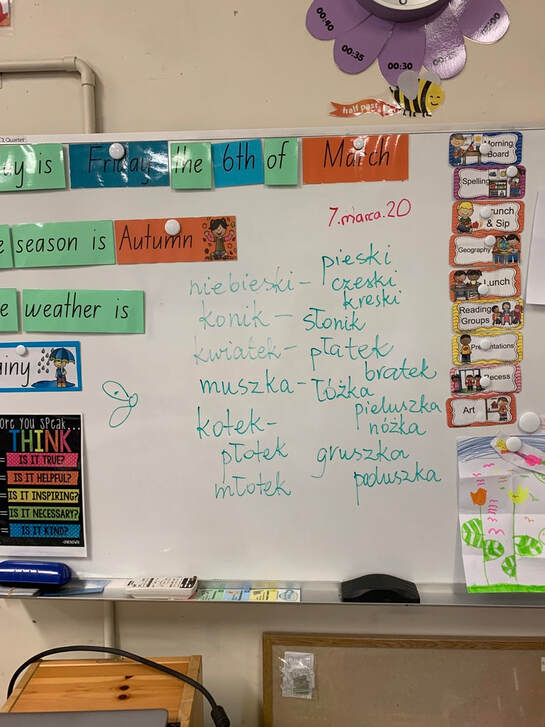 00:40
00:35
00:30
00:25
00:20
half past
Quarter
y is Friday the 6th of March
e season is Autumn
e weather is
ainy
7.marca.20
niebieski – pieski
czeski
kreski
konik – słonik
kwiatek – płatek
bratek
muszka – łóżka
pieluszka
nóżka
kotek –
płotek gruszka
młotek poduszka
Morning Board
Spelling
Crunch & Sip
Geography
Lunch
Reading Groups
Presentations
Recess
Art
ore you speak...
THINK
IS IT TRUE?
IS IT HELPFUL?
IS IT INSPIRING?
IS IT NECESSARY?
IS IT KIND?